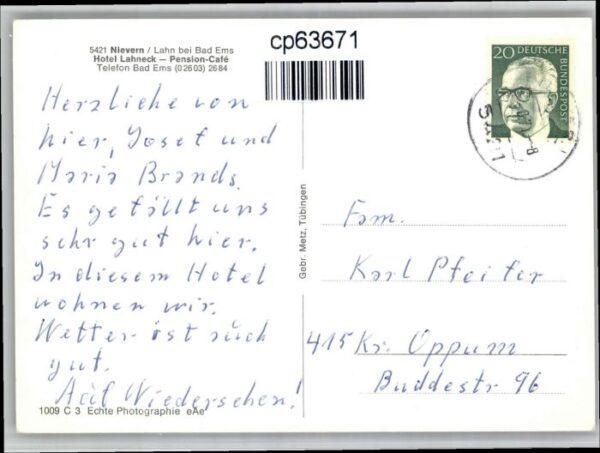 5421 Nievern / Lahn bei Bad Ems
Hotel Lahneck – Pension-Café
Telefon Bad Ems (02603) 2684
cp63671
20 DEUTSCHE
BUNDESPOST
Herzliche von
hier, Josef und
Maria Brands.
Es gefällt uns
sehr gut hier.
In diesem Hotel
wohnen wir.
Wetter ist auch
gut.
Auf Wiedersehen!
Gebr. Metz, Tübingen
Fam.
Karl Pfeifer
415 Kr. Oppum
Buddestr 96
1009 C 3 Echte Photographie eAe